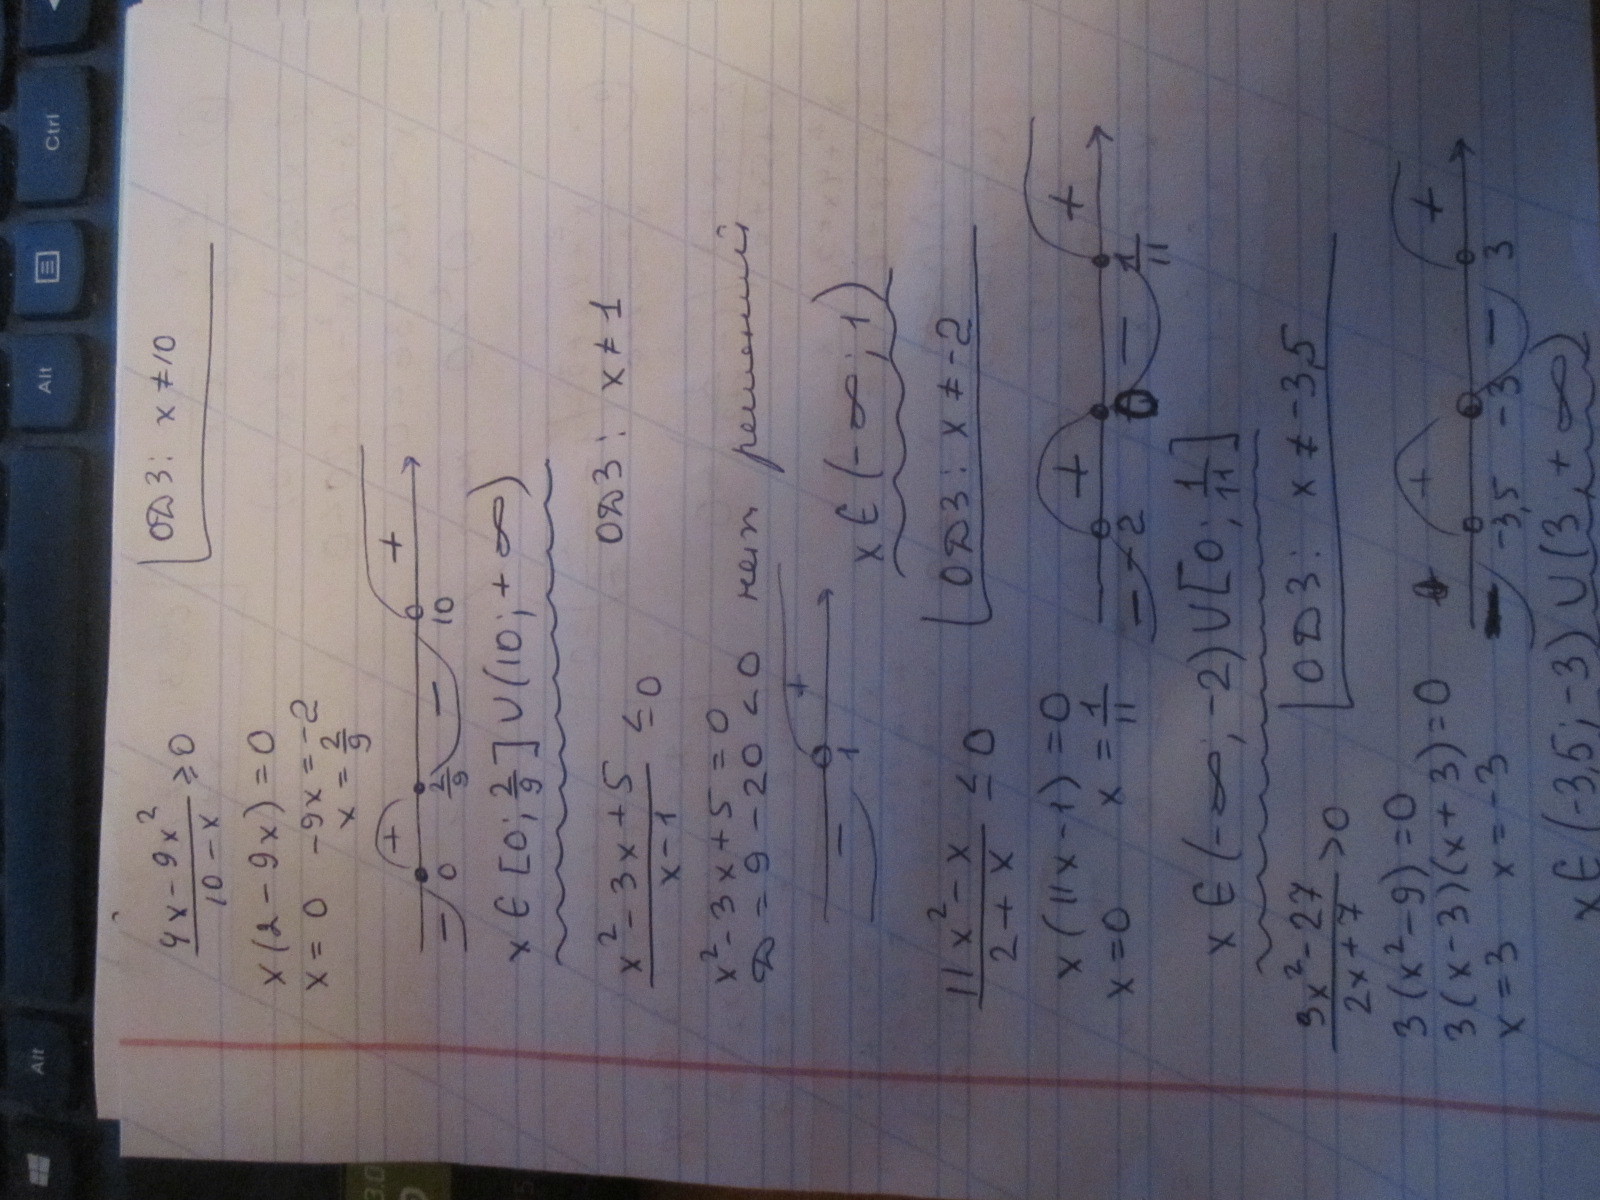 4x - 9x² / 10 - x ≥ 0    ОДЗ: x ≠ 10
x(2 - 9x) = 0
x = 0   -9x = -2
x = 2/9
- + - +
0   2/9   10
x ∈ [0; 2/9] ∪ (10; +∞)
x² - 3x + 5 / x - 1 ≤ 0    ОДЗ: x ≠ 1
x² - 3x + 5 = 0
D = 9 - 20 < 0   нет решений
- +
1
x ∈ (-∞; 1)
11x² - x / 2 + x ≤ 0    ОДЗ: x ≠ -2
x(11x - 1) = 0
x = 0   x = 1/11
- + - +
-2   0   1/11
x ∈ (-∞; -2) ∪ [0; 1/11]
3x² - 27 / 2x + 7 > 0    ОДЗ: x ≠ -3,5
3(x² - 9) = 0
3(x - 3)(x + 3) = 0
x = 3   x = -3
- + - +
-3,5   -3   3
x ∈ (-3,5; -3) ∪ (3; +∞)
Alt
Alt
Ctrl